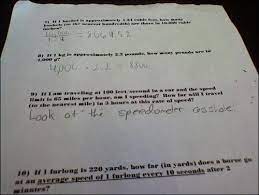 7) If 1 bushel is approximately 1.24 cubic feet, how many
bushels (to the nearest hundredth) are there in 10,000 cubic
inches?
8) If 1 kg is approximately 2.2 pounds, how many pounds are in
4,000 g?
4,000 · 2.2 = 8800
9) If I am traveling at 100 feet/second in a car and the speed
limit is 65 miles per hour, am I speeding? How far will I travel
(to the nearest mile) in 3 hours at this rate of speed?
Look at the speedometer asshole.
10) If 1 furlong is 220 yards, how far (in yards) does a horse go
at an average speed of 1 furlong every 10 seconds after 2
minutes?